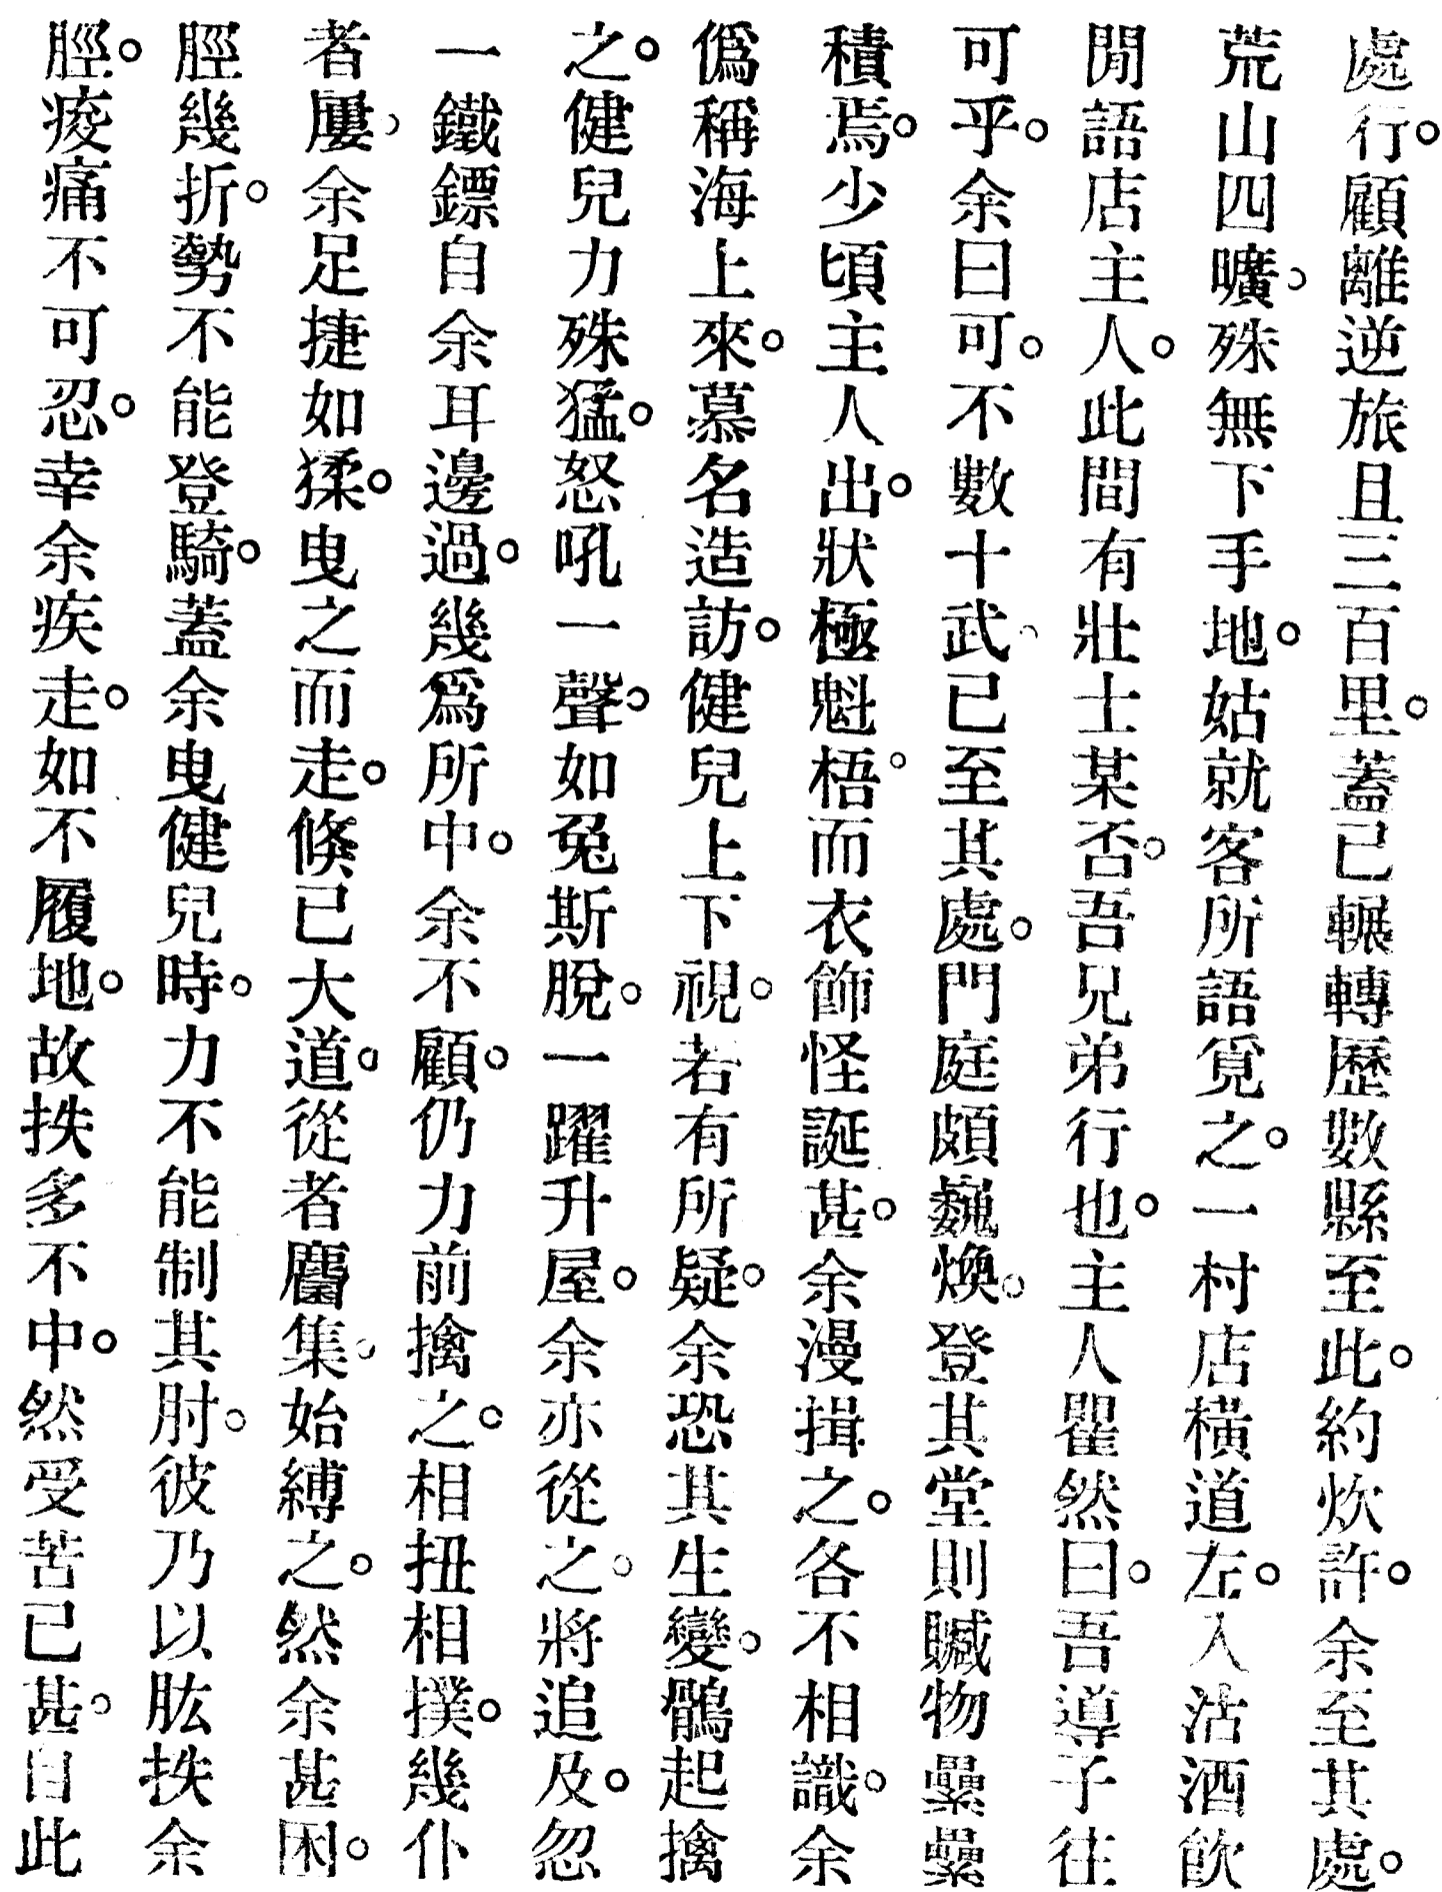 處行。顧離逆旅且三百里。蓋已輾轉歷數縣至此。約炊許。余至其處。
荒山四曠。殊無下手地。姑就客所語覓之。一村店橫道左。入沽酒飮
閒語店主人。此間有壯士某否。吾兄弟行也。主人瞿然曰。吾導子往
可乎。余曰可。不數十武。已至其處。門庭頗巍煥。登其堂則贓物纍纍
積焉。少頃主人出。狀極魁梧。而衣飾怪誕甚。余漫揖之。各不相識。余
僞稱海上來。慕名造訪。健兒上下視。若有所疑。余恐其生變。鶻起擒
之。健兒力殊猛。怒吼一聲。如兔斯脫。一躍升屋。余亦從之。將追及。忽
一鐵鏢自余耳邊過。幾爲所中。余不顧。仍力前擒之。相扭相撲。幾仆
者屢。余足捷如猱。曳之而走。倏已大道。從者麕集。始縛之。然余甚困。
脛幾折。勢不能登騎。蓋余曳健兒時。力不能制其肘。彼乃以肱抶余
脛。痠痛不可忍。幸余疾走。如不履地。故抶多不中。然受苦已甚。自此